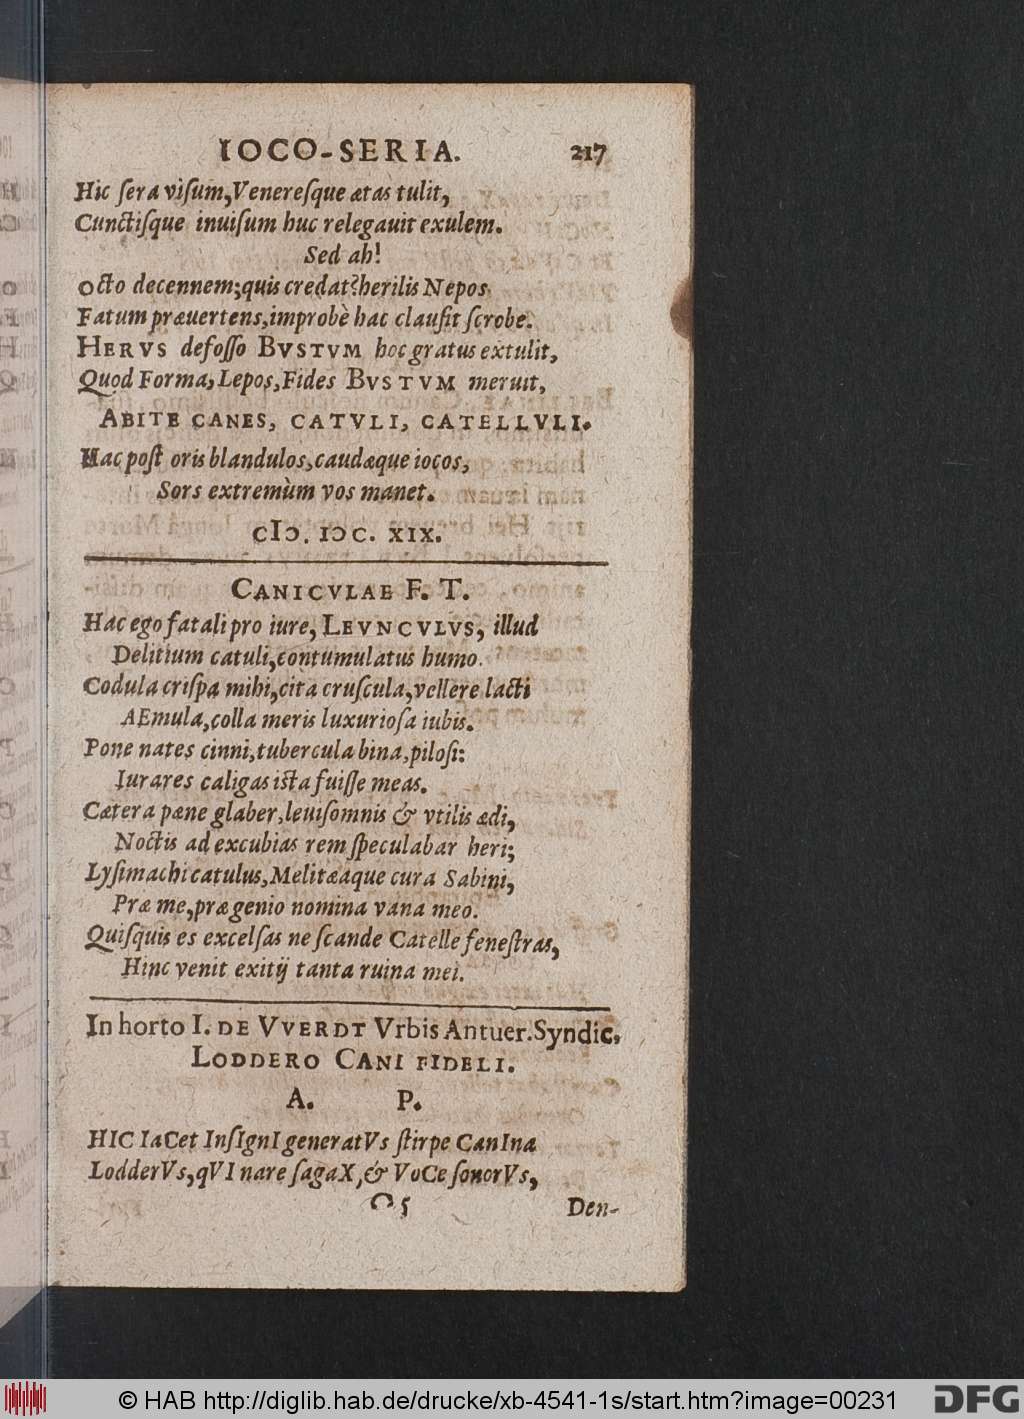 IOCO-SERIA. 217
Hic ſera viſum,Venereſque ætas tulit,
Cunctiſque inuiſum huc relegauit exulem.
Sed ah!
octo decennem;quis credat?herilis Nepos
Fatum præuertens,improbè hac clauſit ſcrobe.
HERVS defoſſo BVSTVM hoc gratus extulit,
Quod Forma,Lepos,Fides BVSTVM meruit,
ABITE CANES, CATVLI, CATELLVLI.
Hac poſt oris blandulos,caudæque iocos,
Sors extremùm vos manet.
cIↃ. IↃC. XIX.
CANICVLAE F. T.
Hac ego fatali pro iure, LEVNCVLVS, illud
Delitium catuli,contumulatus humo.
Codula criſpa mihi,cita cruſcula,vellere lacti
AEmula,colla meris luxurioſa iubis.
Pone nates cinni,tubercula bina,piloſi:
Iurares caligas iſta fuiſſe meas.
Cætera pæne glaber,leuiſomnis & vtilis ædi,
Noctis ad excubias rem ſpeculabar heri;
Lyſimachi catulus,Melitæaque cura Sabini,
Præ me,præ genio nomina vana meo.
Quiſquis es excelſas ne ſcande Catelle feneſtras,
Hinc venit exitij tanta ruina mei.
In horto I. DE VVERDT Vrbis Antuer.Syndic,
LODDERO CANI FIDELI.
A. P.
HIC IaCet InſIgnI generatVs ſtirpe CanIna
LodderVs,qVI nare ſagaX,& VoCe ſonorVs,
O 5 Den-
© HAB http://diglib.hab.de/drucke/xb-4541-1s/start.htm?image=00231 DFG